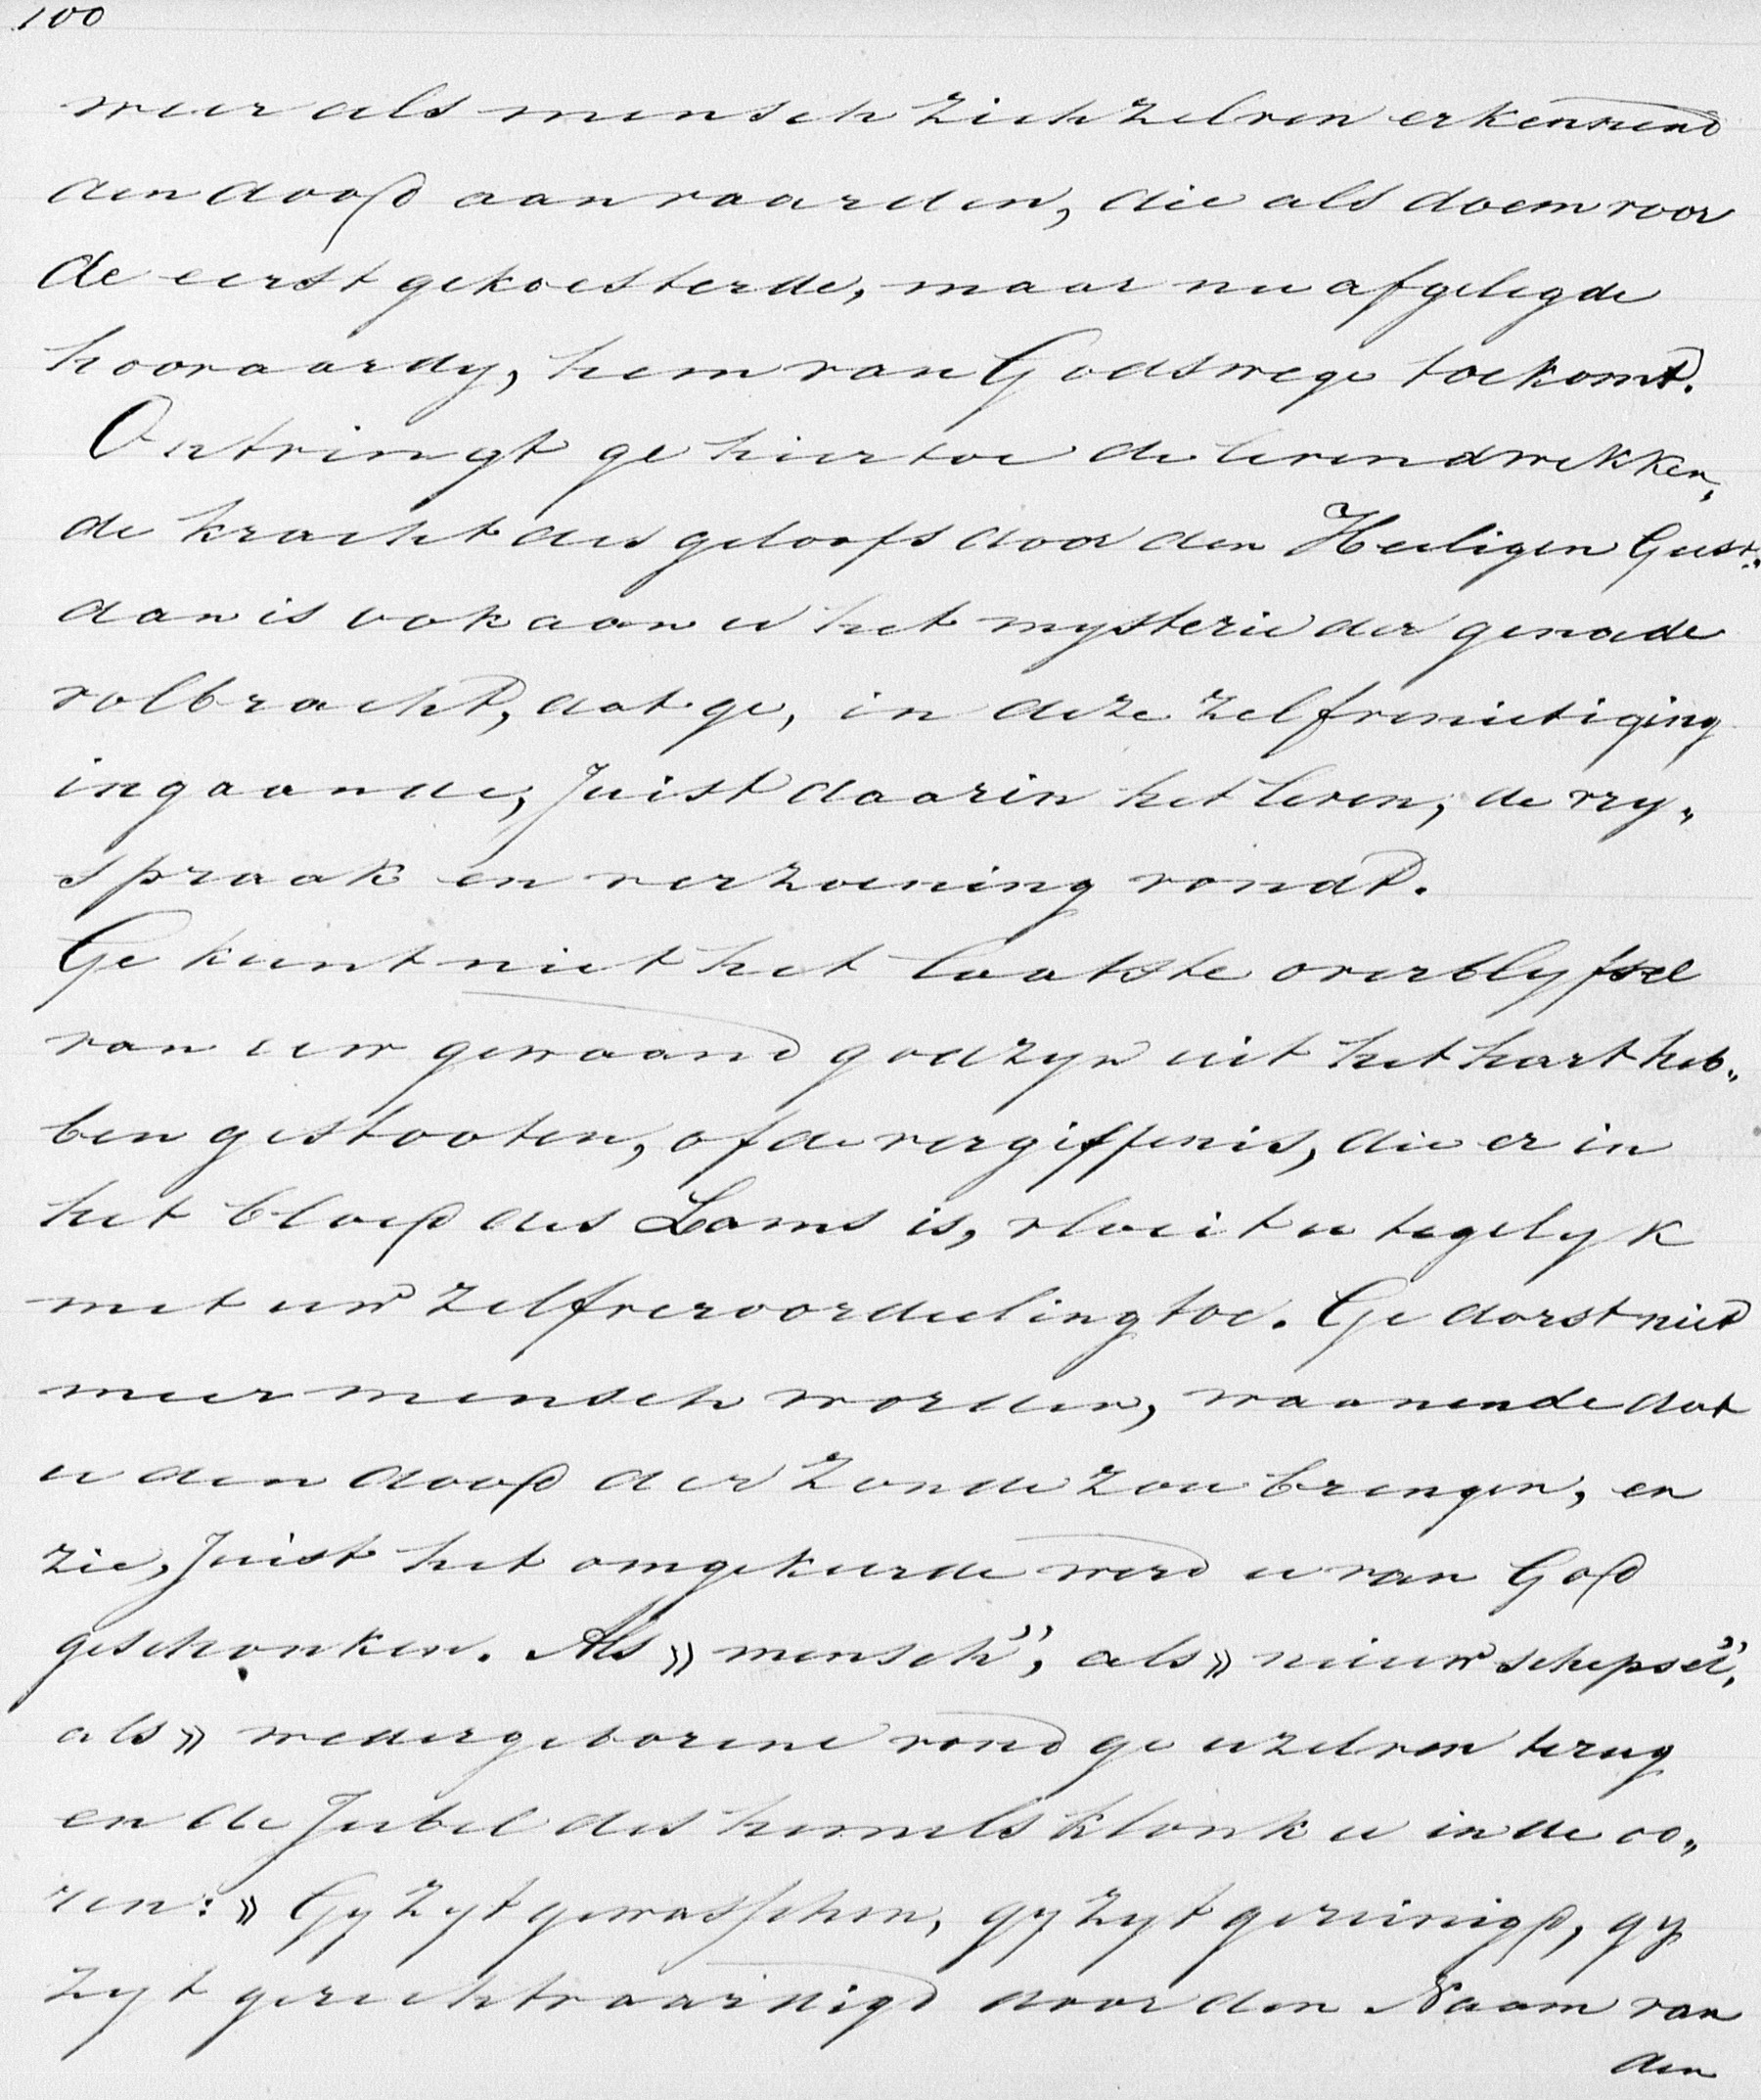 100
weer als mensch zichzelven erkennend
den dood aanvaarden, die als doem voor
de eerst gekoesterde, maar nu afgelegde
hoovaardy, hem van Godswege toekomt.
Ontvingt ge hiertoe de levendwekken„
de kracht des geloofs door den Heiligen Geest„
dan is ook aan u het mysterie der genade
volbracht, dat ge, in deze zelfvernietiging
ingaande, juist daarin het leven, de vry„
spraak en verzoening vondt.
Ge kunt niet het laatste overblyfsel
van uw gewaand godzyn uit het hart heb„
ben gestooten, of de vergiffenis, die er in
het bloed des Lams is, vloeit u tegelyk
met uw zelfveroordeeling toe. Ge dorst niet
meer mensch worden, waanende dat
u den dood der zonde zou brengen, en
zie, juist het omgekeerde werd u van God
geschonken. Als » mensch”, als » nieuw schepsel”,
als » wedergeborene vond ge uzelven terug
en de jubel des hemels klonk u in de oo„
ren: » Gy zyt gewasschen, gy zyt gereinigd, gy
zyt gerechtvaardigd door den Naam van
den